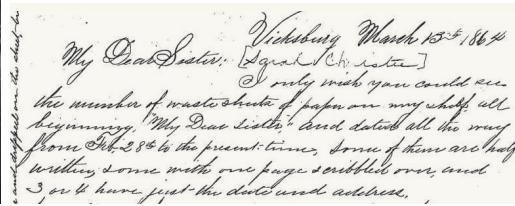 Vicksburg March 13th 1864
My Dear Sister: [Sarah Christie]
I only wish you could see
the number of waste sheets of paper on my shelf all
beginning, "My Dear Sister" and dated all the way
from Feb. 28th to the present time, some of them are half
written, some with one page scribbled over, and
3 or 4 have just the date and address.
and dropped on the sheet